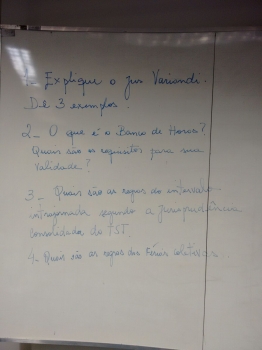 1- Explique o Jus Variandi.
Dê 3 exemplos.
2- O que é o Banco de Horas?
Quais são os requisitos para sua
validade?
3- Quais são as regras do intervalo
intrajornada segundo a jurisprudência
consolidada do TST.
4- Quais são as regras das Férias coletivas.